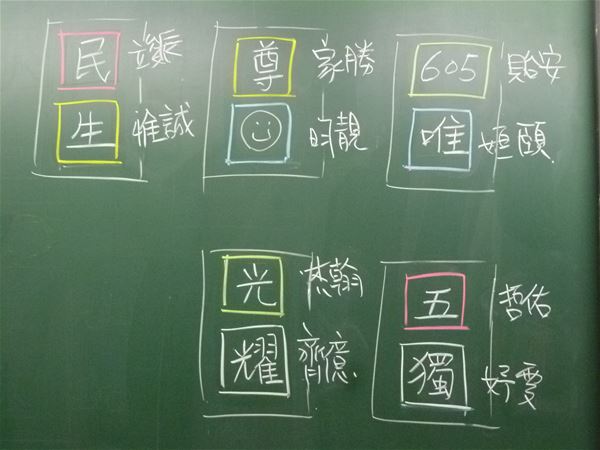 民 竣振
生 惟誠
尊 家勝
昀靚
605 貽安
唯 姮頤
光 杰翰
耀 齊億
五 哲佑
獨 好雯